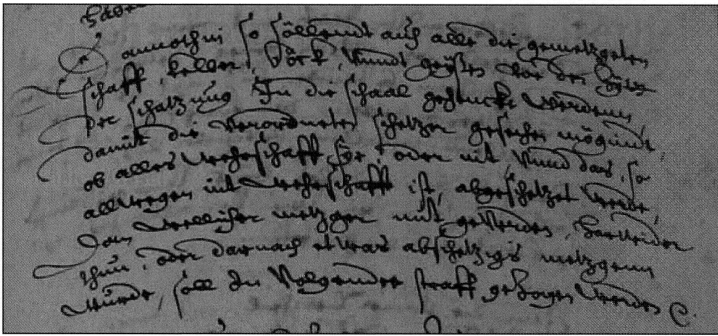 annothin so söllendt auch alle die gemetzgeten
schaff, kelber, Böck, vnndt geyssen vor der
der schatzung Inn die schaal gehenckt werdenn,
damit die verordneten schetzer gesehen mögindt,
ob alles wehrschafft sye, oder nit, vnnd das, so
allwegen nit wehrschafft ist, abgeschetzet werde,
dan wellicher metzger mit gferden, harwider
thun, oder darnach etwas abschetzigs metzgenn
wurde, soll der volgenden straff gezogen werden